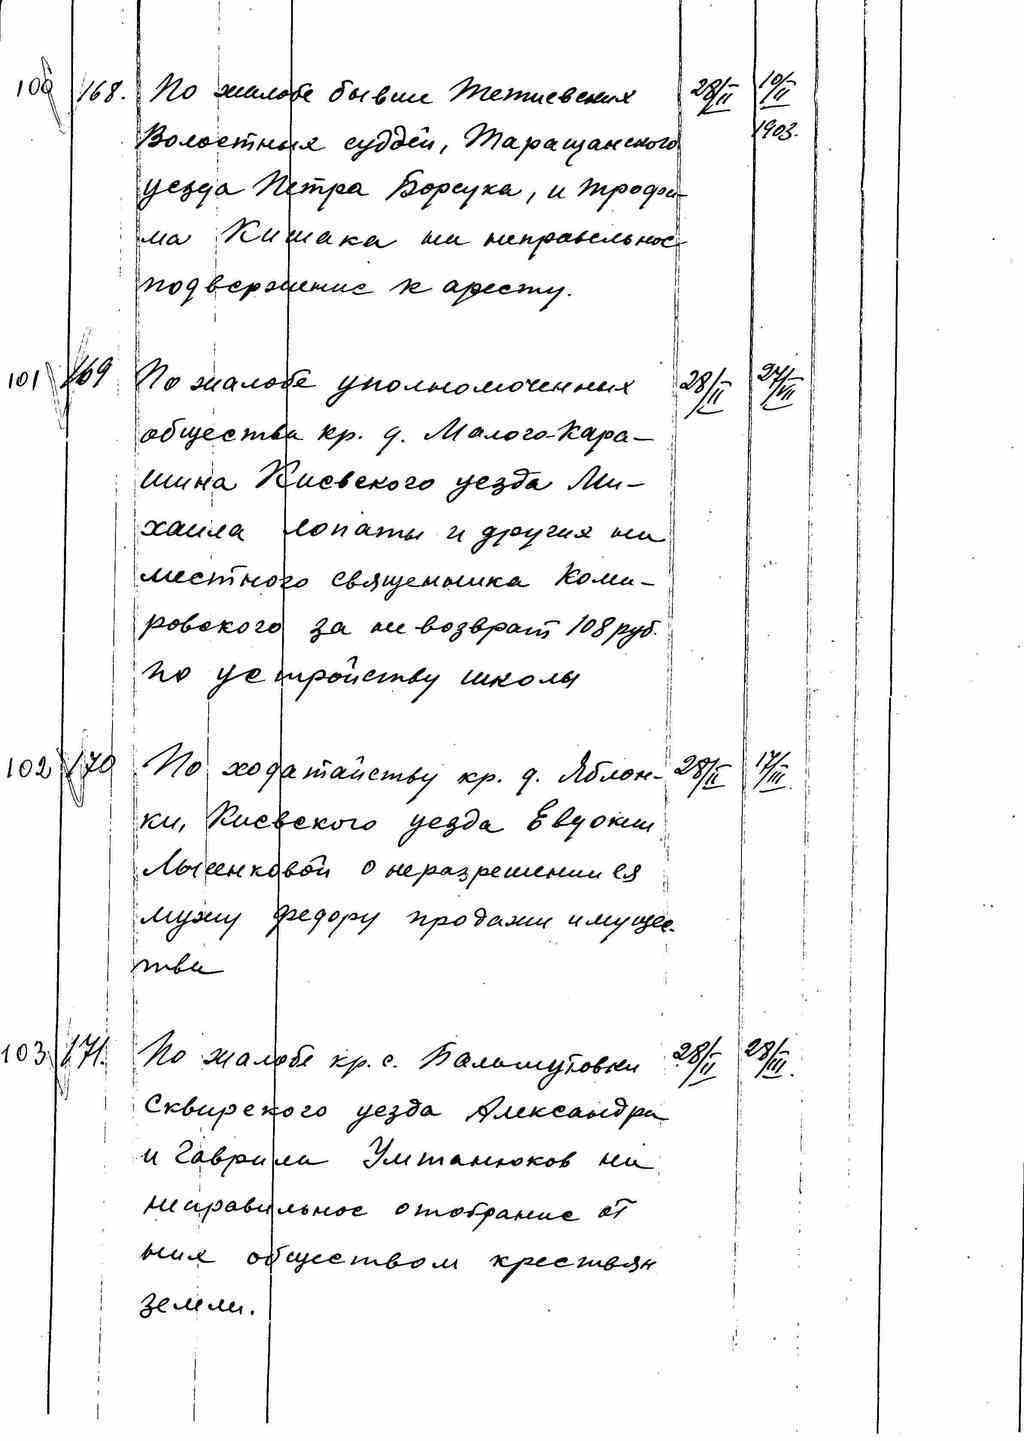 100 168. По жалобе бывш Тетиевских 28/II 10/II
Волостных суддей, Таращанского 1903.
уезда Петра Борсука, и Трофи-
ма Кишака на неправельное
подвержение к аресту.
101 169 По жалобе уполномоченных 28/II 27/VII
общества кр. д. Малого-Кара-
шина Киевского уезда Ми-
хаила Лопаты и других на
местного священника Кома-
ровского за не возврат 108 руб.
по устройству школы
102 170 По ходатайству кр. д. Яблон- 28/II 17/III
ки, Киевского уезда Евдокии
Лысенковой о неразрешении ея
мужу Федору продажи имущес-
тва
103 171. По жалобе кр. с. Баламутовки 28/II 28/III.
Сквирского уезда Александра
и Гаврила Уштанюков на
неправильное отобрание от
них обществом крестьян
земли.